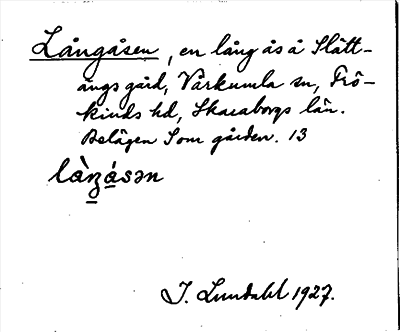 Långåsen, en lång ås å Slätt-
ängs gård, Vårkumla sn, Frö-
kinds hd, Skaraborgs län.
Belägen S om gården. 13
làŋǻsən
I. Lundahl 1927.